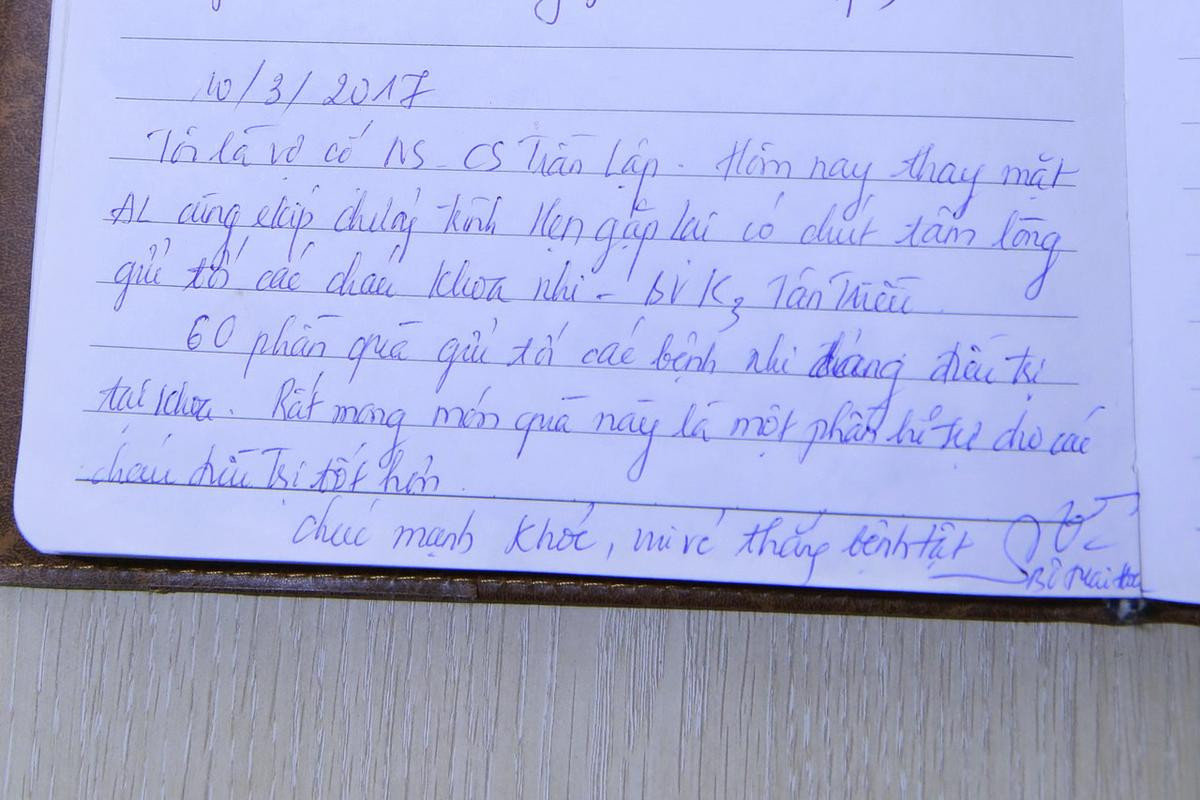 10/3/2017
Tôi là vợ cố NS - CS Trần Lập. Hôm nay thay mặt
AL cùng ekip chương trình Hẹn gặp lại có chút tấm lòng
gửi tới các cháu khoa nhi - BV K3 Tân Triều.
60 phần quà gửi tới các bệnh nhi đang điều trị
tại khoa. Rất mong món quà này là một phần hỗ trợ cho các
cháu điều trị tốt hơn.
chúc mạnh khoẻ, vui vẻ thắng bệnh tật